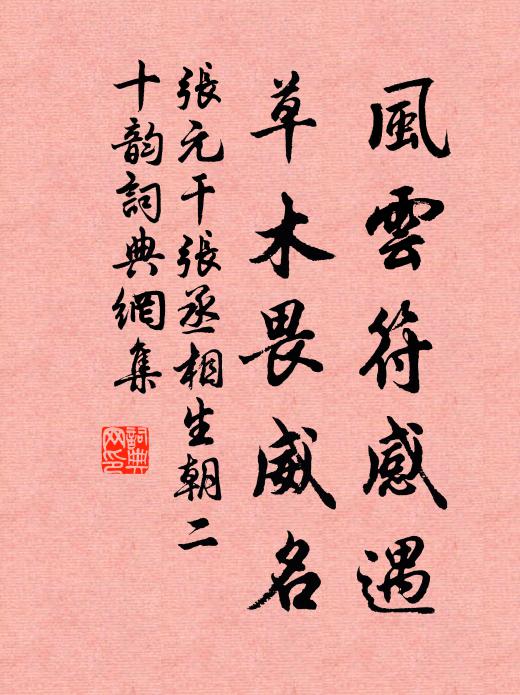 風雲符感遇
草木畏威名
張元干張丞相生朝二
十韵詞典網集
詞典
网印